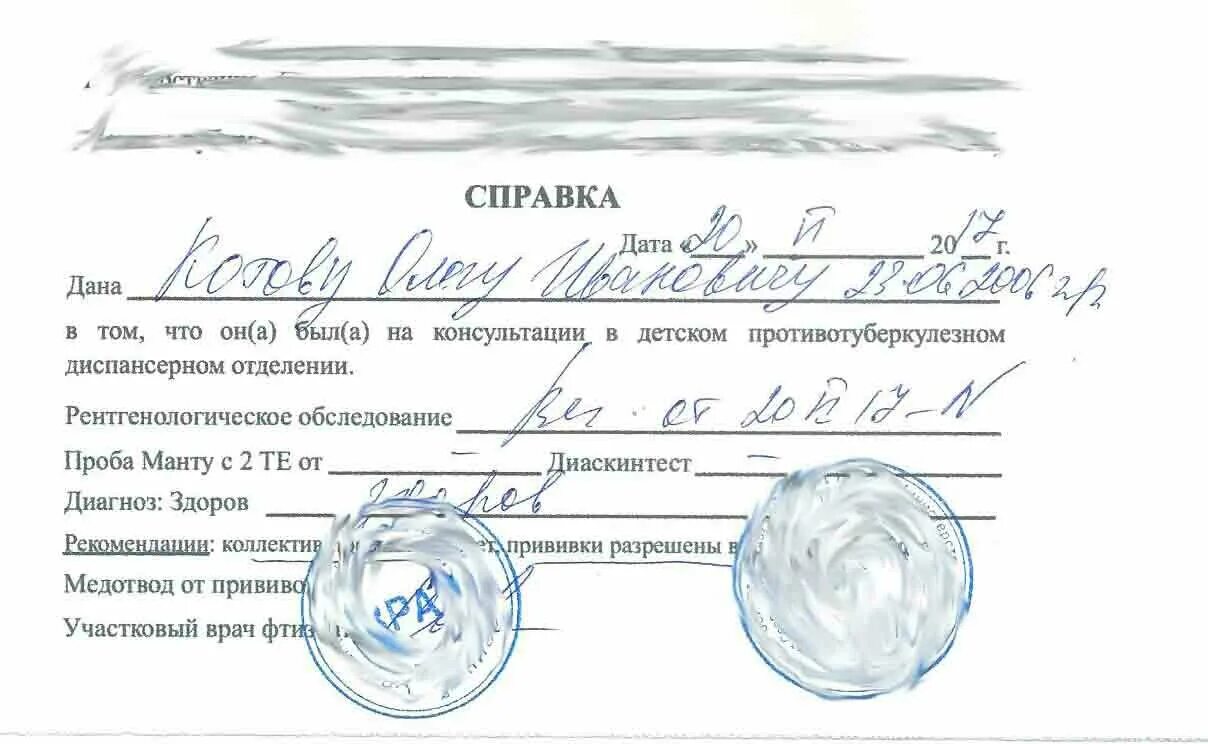 СПРАВКА
Дата «20» II 2017 г.
Дана Котову Олегу Ивановичу 23.06.2006 г.р.
в том, что он(а) был(а) на консультации в детском противотуберкулезном
диспансерном отделении.
Рентгенологическое обследование от 20 II 17 - N
Проба Манту с 2 ТЕ от – Диаскинтест –
Диагноз: Здоров здоров
Рекомендации: прививки разрешены
Медотвод от
Участковый врач